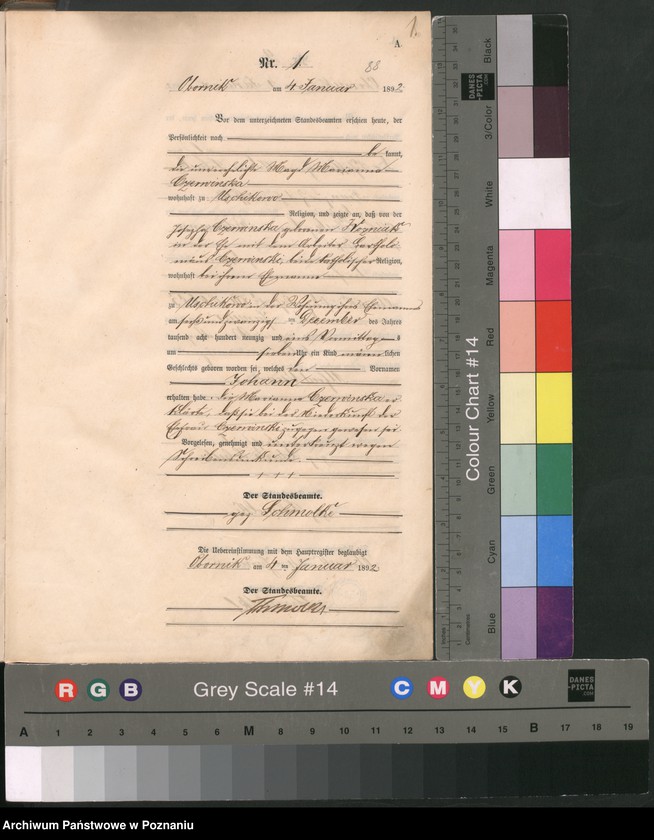 1.
A
Nr. 1
88
Obornik am 4 Januar 1892
Vor dem unterzeichneten Standesbeamten erschien heute, der
Persönlichkeit nach
be kannt,
die unverehelichte Magd Marianna
Czerwinska
wohnhaft zu Uschikowo
Religion, und zeigte an, daß von der
Josepha Czerwinska geborenen
in der Ehe mit dem Arbeiter Bartholo
mäus Czerwinski, beide katholischer Religion,
wohnhaft bei ihrem Ehemanne
zu Uschikowo in der Wohnung ihres Ehemannes
am sechsundzwanzigsten Dezember des Jahres
tausend acht hundert neunzig und eins Vormittags
um sieben Uhr ein Kind männlichen
Geschlechts geboren worden sei, welches den Vornamen
Johann
erhalten habe. die Marianna Czerwinska er
klärte, daß sie bei der Niederkunft der
Ehefrau Czerwinski zugegen gewesen sei
Vorgelesen, genehmigt und unterkreuzt wegen
Schreibensunkunde.
+ + +
Der Standesbeamte.
gez. Schmolke
Die Uebereinstimmung mit dem Hauptregister beglaubigt
Obornik am 4 ten Januar 1892
Der Standesbeamte.
Schmolke
Black
3/Color
White
Magenta
Red
Yellow
Green
Cyan
Blue
Colour Chart #14
DANES-PICTA.COM
Centimetres
R G B Grey Scale #14 C M Y K
DANES-PICTA.COM
A 1 2 3 4 5 6 M 8 9 10 11 12 13 14 15 B 17 18 19
Archiwum Państwowe w Poznaniu